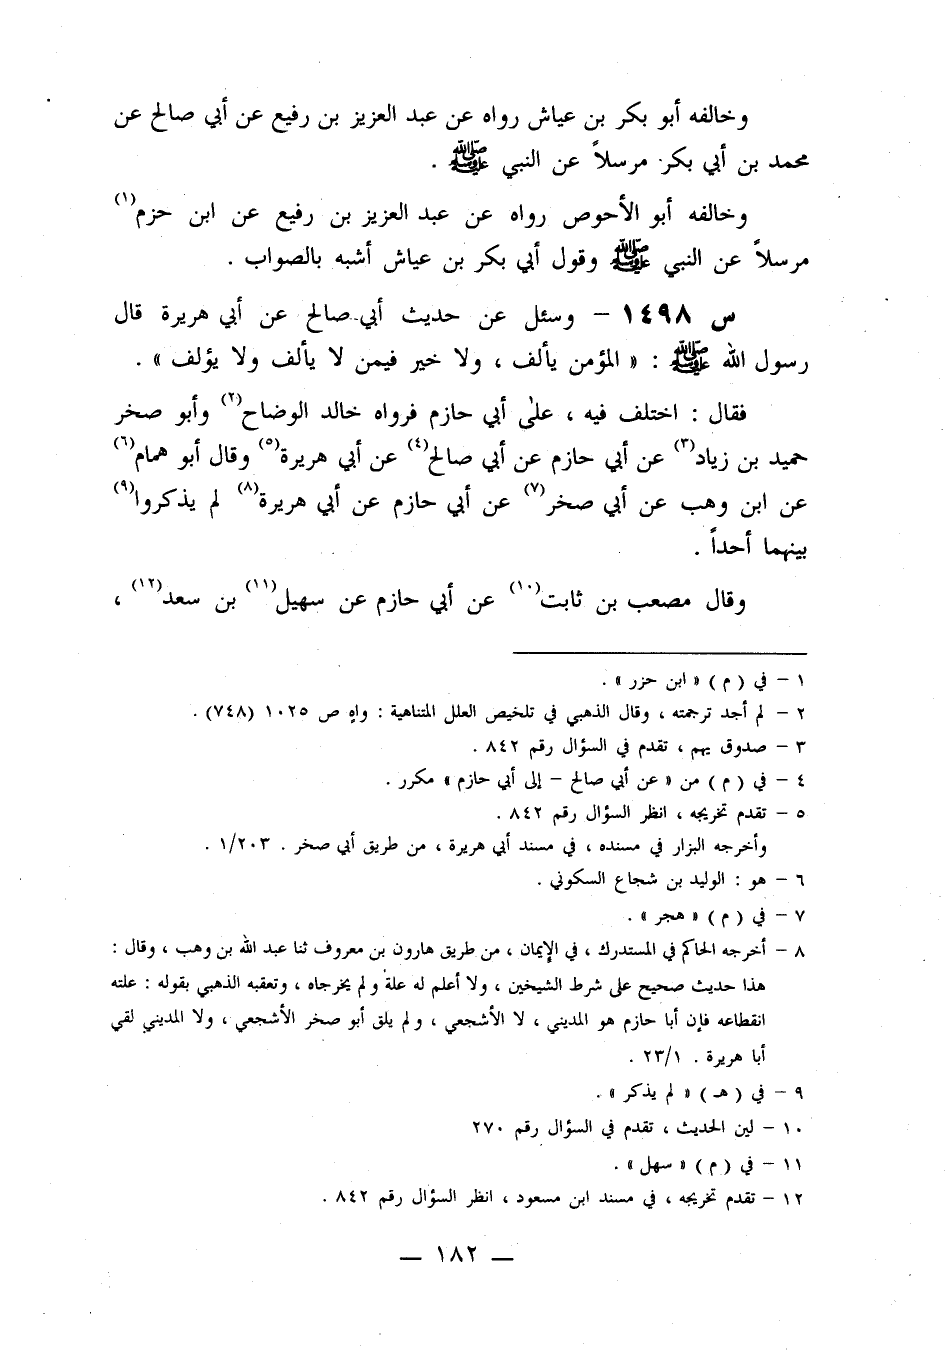 وخالفه أبو بكر بن عياش رواه عن عبد العزيز بن رفيع عن أبي صالح عن
محمد بن أبي بكر مرسلاً عن النبي ﷺ .
وخالفه أبو الأحوص رواه عن عبد العزيز بن رفيع عن ابن حزم(١)
مرسلاً عن النبي ﷺ وقول أبي بكر بن عياش أشبه بالصواب .
س ١٤٩٨ – وسئل عن حديث أبي صالح عن أبي هريرة قال
رسول الله ﷺ : « المؤمن يألف ، ولا خير فيمن لا يألف ولا يؤلف » .
فقال : اختلف فيه ، على أبي حازم فرواه خالد الوضاح(٢) وأبو صخر
حميد بن زياد(٣) عن أبي حازم عن أبي صالح(٤) عن أبي هريرة(٥) وقال أبو همام(٦)
عن ابن وهب عن أبي صخر(٧) عن أبي حازم عن أبي هريرة(٨) لم يذكروا(٩)
بينهما أحداً .
وقال مصعب بن ثابت(١٠) عن أبي حازم عن سهيل(١١) بن سعد(١٢) ،
١ – في ( م ) « ابن حزر » .
٢ – لم أجد ترجمته ، وقال الذهبي في تلخيص العلل المتناهية : واهٍ ص ١٠٢٥ (٧٤٨) .
٣ – صدوق يهم ، تقدم في السؤال رقم ٨٤٢ .
٤ – في ( م ) من « عن أبي صالح – إلى أبي حازم » مكرر .
٥ – تقدم تخريجه ، انظر السؤال رقم ٨٤٢ .
وأخرجه البزار في مسنده ، في مسند أبي هريرة ، من طريق أبي صخر . ١/٢٠٣ .
٦ – هو : الوليد بن شجاع السكوني .
٧ – في ( م ) « هجر » .
٨ – أخرجه الحاكم في المستدرك ، في الإيمان ، من طريق هارون بن معروف ثنا عبد الله بن وهب ، وقال :
هذا حديث صحيح على شرط الشيخين ، ولا أعلم له علة ولم يخرجاه ، وتعقبه الذهبي بقوله : علته
انقطاعه فإن أبا حازم هو المديني ، لا الأشجعي ، ولم يلق أبو صخر الأشجعي ، ولا المديني لقي
أبا هريرة . ٢٣/١ .
٩ – في ( هـ ) « لم يذكر » .
١٠ – لين الحديث ، تقدم في السؤال رقم ٢٧٠
١١ – في ( م ) « سهل » .
١٢ – تقدم تخريجه ، في مسند ابن مسعود ، انظر السؤال رقم ٨٤٢ .
— ١٨٢ —